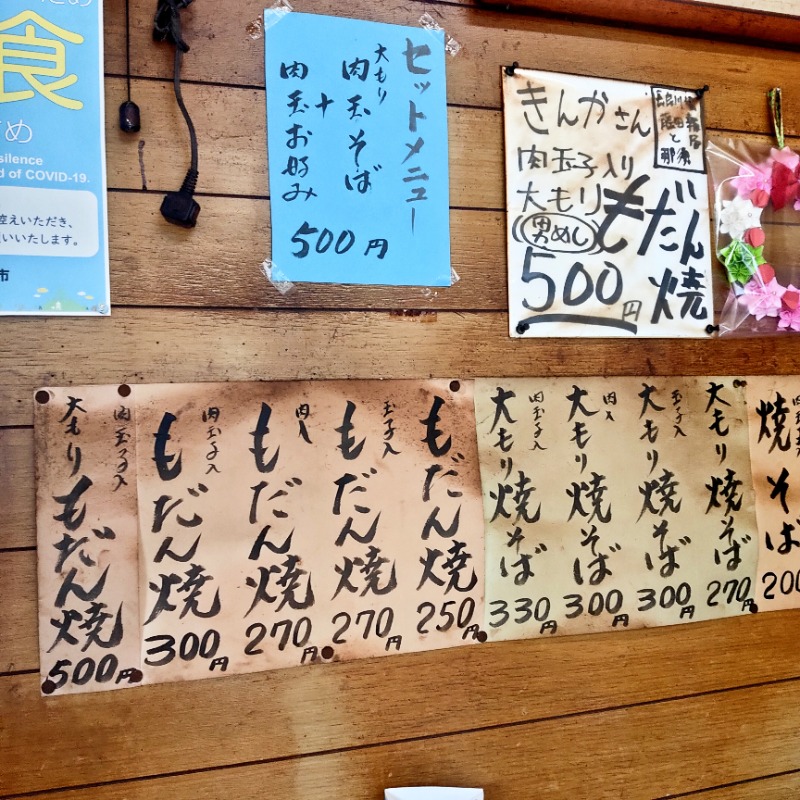 食
め
silence
d of COVID-19.
控えいただき、
いいたします。
市
セットメニュー
大もり
肉玉そば
+
肉玉お好み
500円
きんかさん
肉玉子入り
大もり
男めし
もだん焼
500円
大もりもだん焼
肉玉子入
500円
もだん焼
肉玉子入
300円
もだん焼
肉入
270円
もだん焼
玉子入
270円
もだん焼
250円
大もり焼そば
肉玉子入
330円
大もり焼そば
肉入
300円
大もり焼そば
玉子入
300円
大もり焼そば
270円
焼そば
200